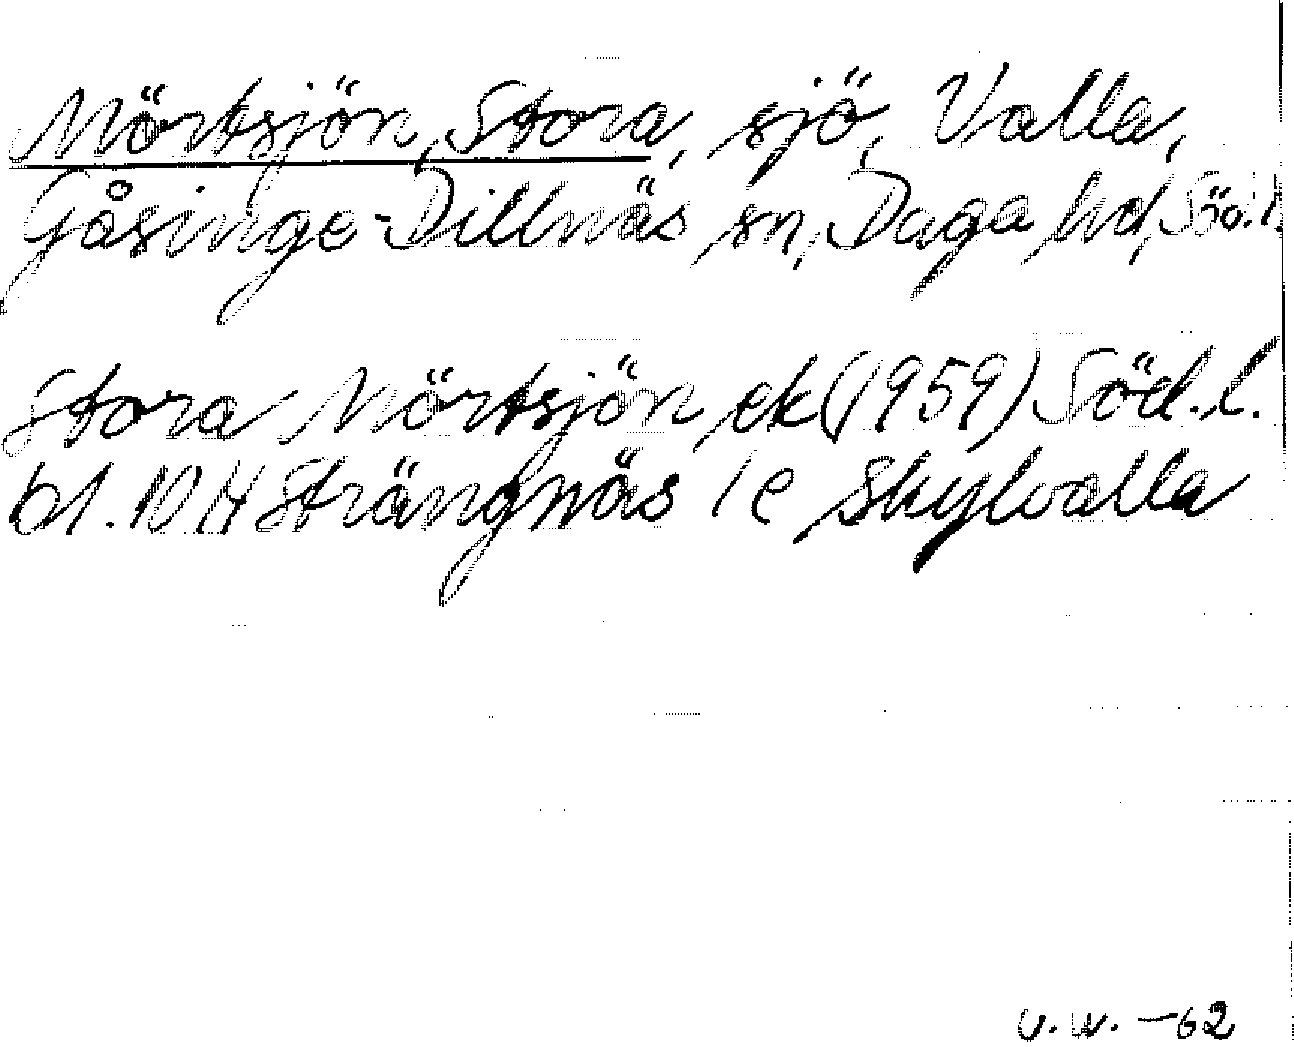 Mörtsjön, Stora, sjö, Valla,
Gåsinge-Dillnäs sn, Daga hd, Söd.l.
Stora Mörtsjön ek (1959) Söd.l.
bl. 10 H Strängnäs 1 e Skylvalla
U.W. -62